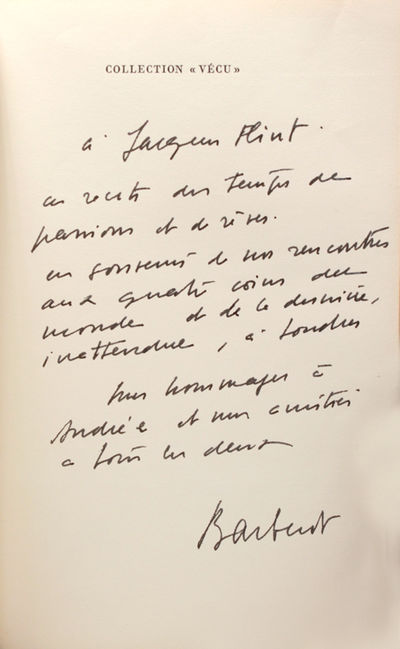 COLLECTION « VÉCU »
à Jacques Flint.
ces récits des temps de
passions et de rêves.
en souvenir de nos rencontres
aux quatre coins du
monde et de la dernière,
inattendue, à Londres
mes hommages à
Andrée et mon amitié
à tous les deux
Barberot